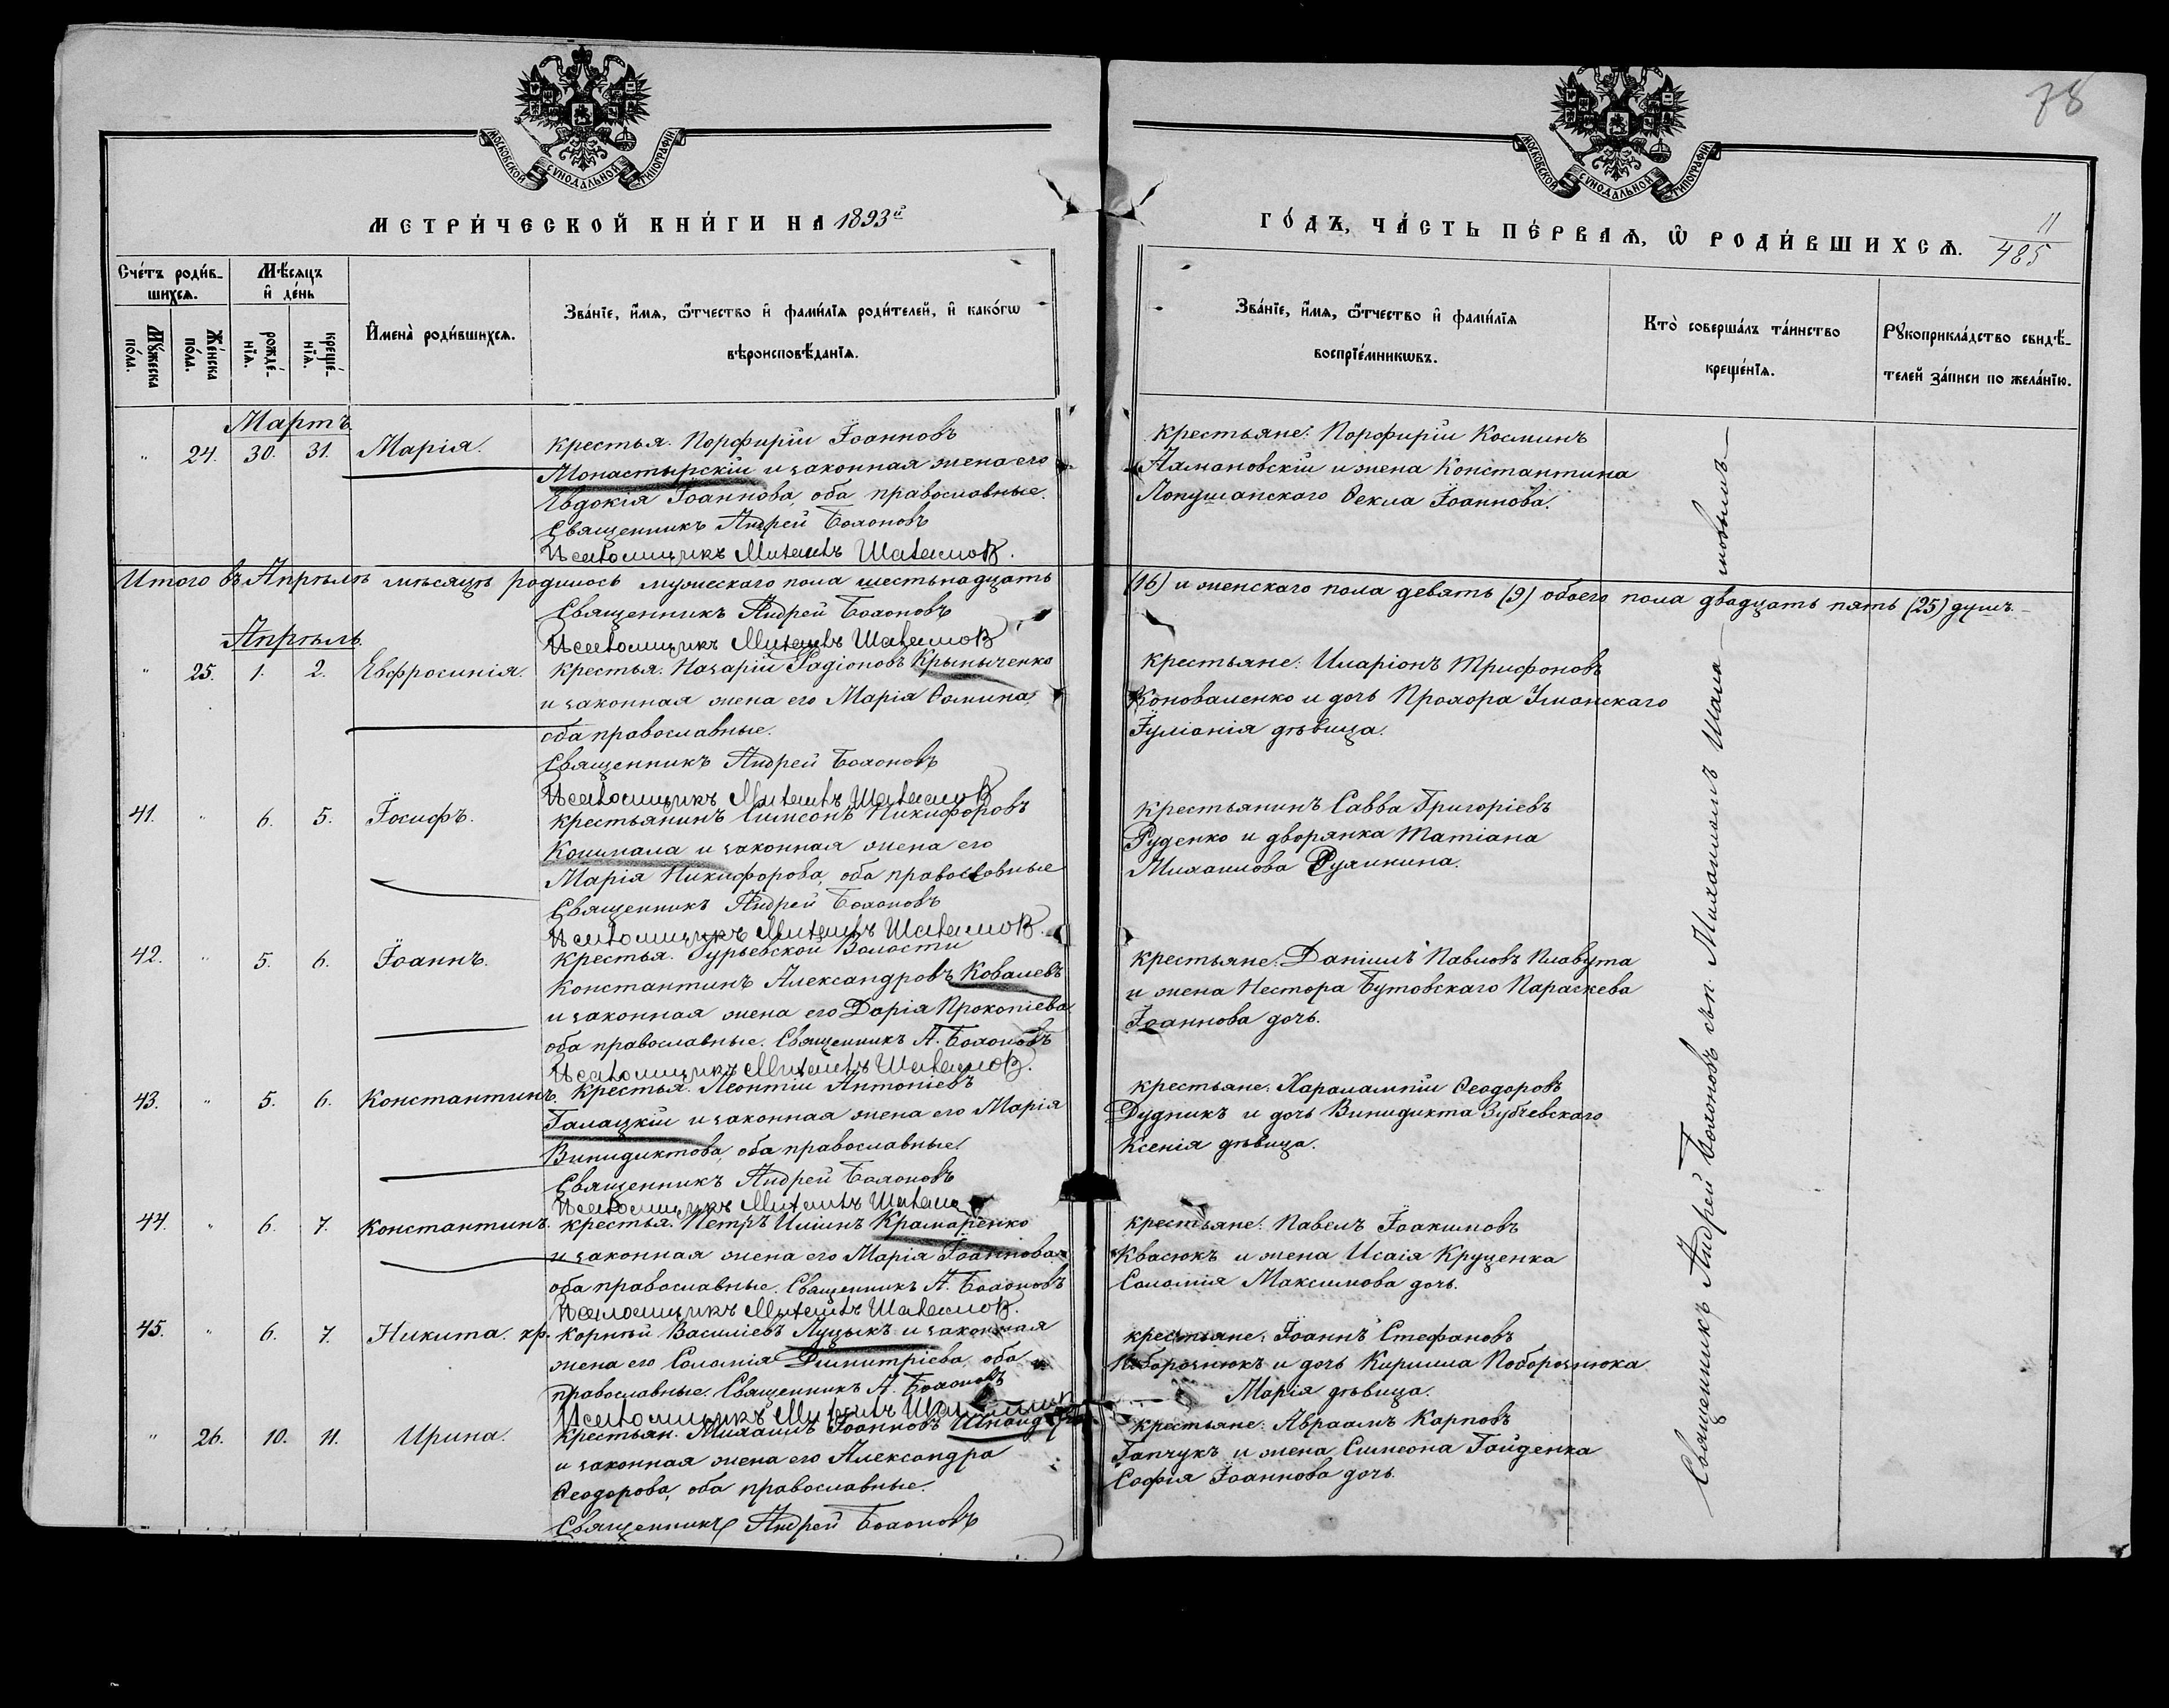 78
МОСКОВСКОЙ СУНОДАЛЬНОЙ ТИПОГРАФІИ
МОСКОВСКОЙ СУНОДАЛЬНОЙ ТИПОГРАФІИ
МЕТРИ́ЧЕСКОЙ КНИ́ГИ НА 1893й
ГО́ДЪ, ЧА́СТЬ ПЕ́РВАѦ, Ѡ РОДИ́ВШИХСѦ.
11
485
Сче́тъ роди́в-
шихсѧ.
Мѣ́сяцъ
и де́нь
Мꙋ́жеска
по́ла.
Же́нска
по́ла.
рожде́-
нїѧ.
креще́-
нїѧ.
Имена̀ роди́вшихсѧ.
Зва́нїе, и́мѧ, ѻ́тчество и фами́лїѧ роди́телей, и како́гѡ
вѣроисповѣ́данїѧ.
Зва́нїе, и́мѧ, ѻ́тчество и фами́лїѧ
воспрїе́мникѡвъ.
Кто̀ соверша́лъ та́инство
креще́нїѧ.
Рꙋкоприкла́дство свидѣ́-
телей за́писи по жела́нїю.
Мартъ.
" 24. 30. 31. Марія. крестья. Порфирій Іоанновъ
Монастырскій и законная жена его
Евдокія Іоаннова, оба православные.
Священникъ Андрей Болоновъ
Псаломщикъ
крестьяне: Порфирій Косминъ
и жена Константина
Лопушанскаго Ѳекла Іоаннова.
Итого въ Апрѣлѣ мѣсяцѣ родилось мужескаго пола шестьнадцать
(16) и женскаго пола девять (9) обоего пола двадцать пять (25) душъ.
Священникъ Андрей Болоновъ
Псаломщикъ
Апрѣль.
" 25. 1. 2. Евфросинія. крестья. Назарій Радіоновъ Крыныченко
и законная жена его Марія Ѳомина,
оба православные.
Священникъ Андрей Болоновъ
Псаломщикъ
крестьяне: Иларіонъ Трифоновъ
Коноваленко и дочь Прохора Уманскаго
Іуліанія дѣвица.
41. " 6. 5. Іосифъ. крестьянинъ Симеонъ Никифоровъ
и законная жена его
Марія Никифорова, оба православные
Священникъ Андрей Болоновъ
Псаломщикъ
крестьянинъ Савва Григоріевъ
Руденко и дворянка Татіана
Михаилова
42. " 5. 6. Іоаннъ. крестья. Гурьевской Волости
Константинъ Александровъ Ковалевъ
и законная жена его Дарія Прокопіева
оба православные. Священникъ А. Болоновъ
Псаломщикъ
крестьяне: Даніилъ Павловъ Плавута
и жена Нестора Бутовскаго Параскева
Іоаннова дочь.
43. " 5. 6. Константинъ. крестья. Леонтій Антоніевъ
Галацкій и законная жена его Марія
Винидиктова, оба православные.
Священникъ Андрей Болоновъ
Псаломщикъ
крестьяне: Харалампій Ѳеодоровъ
Дудникъ и дочь Винидикта Зубчевскаго
Ксенія дѣвица.
44. " 6. 7. Константинъ. крестья. Петръ Иліинъ Крамаренко
и законная жена его Марія Іоаннова
оба православные. Священникъ А. Болоновъ
Псаломщикъ
крестьяне: Павелъ Іоакимовъ
Квасюкъ и жена Исаія Круценка
Саломія Максимова дочь.
45. " 6. 7. Никита. кр. Корнѣй Василіевъ Луцыкъ и законная
жена его Саломія Димитріева, оба
православные. Священникъ А. Болоновъ
Псаломщикъ
крестьяне: Іоаннъ Стефановъ
Поборознюкъ и дочь Кирилла Поборознюка
Марія дѣвица.
" 26. 10. 11. Ирина. крестьян. Михаилъ Іоанновъ
и законная жена его Александра
Ѳеодорова, оба православные.
Священникъ Андрей Болоновъ
крестьяне: Авраамъ Карповъ
Гапчукъ и жена Симеона Гайденка
Софія Іоаннова дочь.
Священникъ Андрей Болоновъ съ п. Михаиломъ Шала-